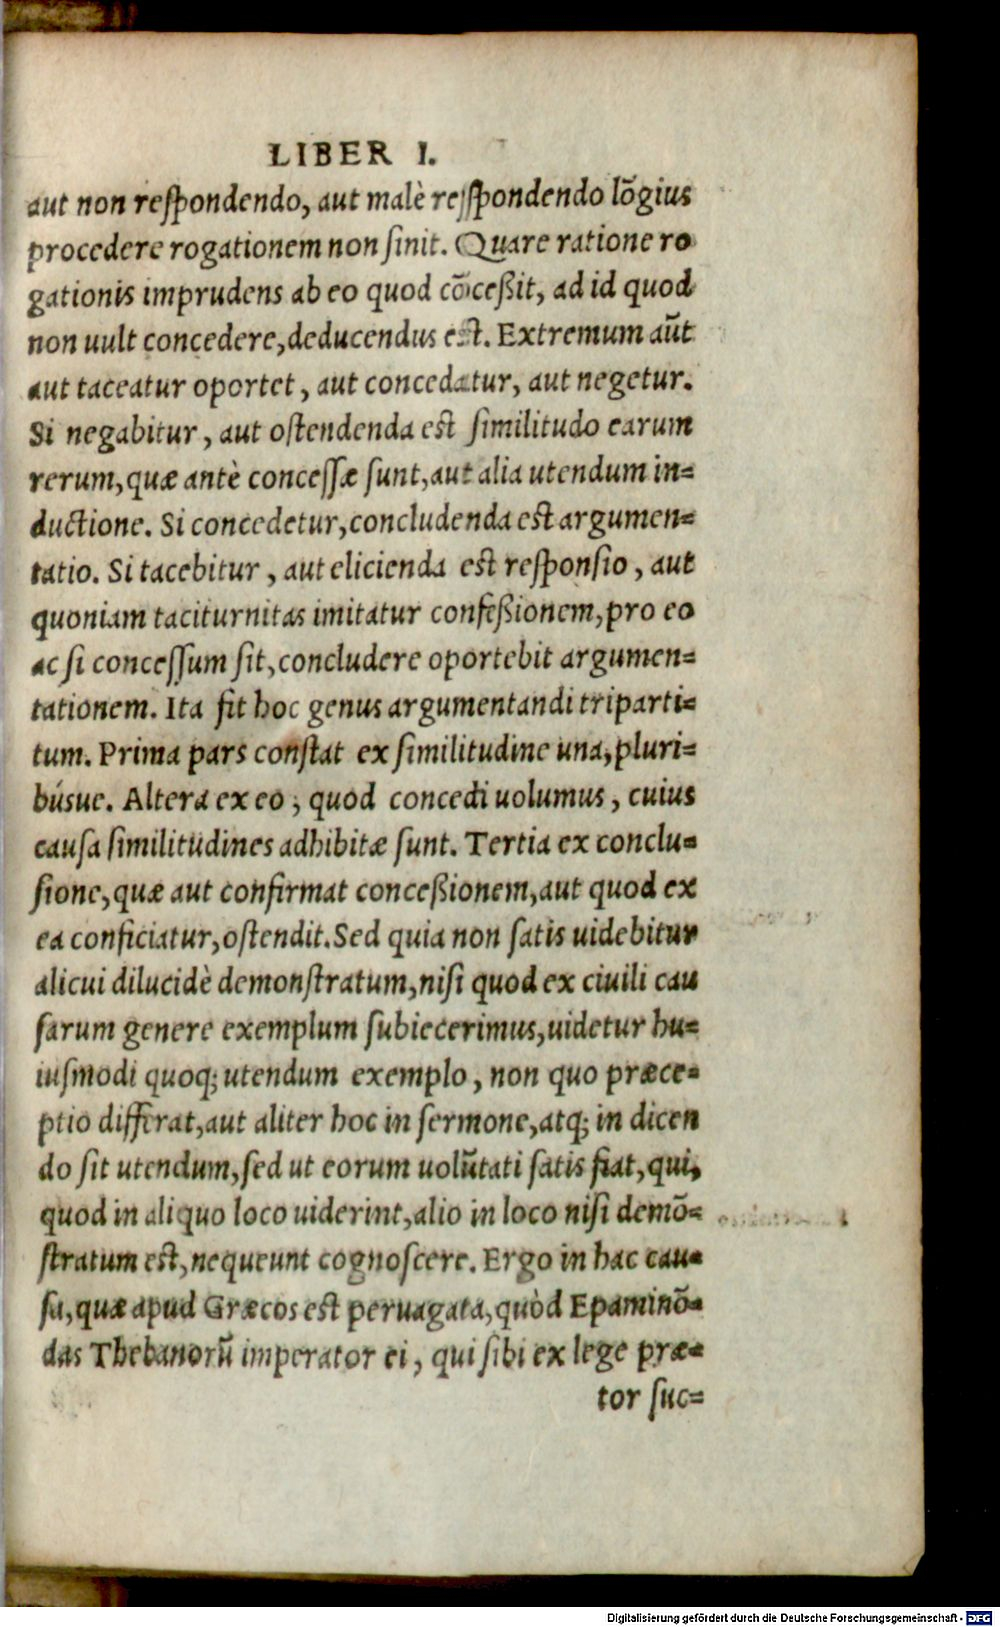 LIBER I.
aut non reſpondendo, aut malè reſſpondendo lōgius
procedere rogationem non ſinit. Quare ratione ro
gationis imprudens ab eo quod cōceßit, ad id quod
non uult concedere, deducendus eſt. Extremum aūt
aut taceatur oportet, aut concedatur, aut negetur.
Si negabitur, aut oſtendenda eſt ſimilitudo earum
rerum, quæ antè conceſſæ ſunt, aut alia utendum in=
ductione. Si concedetur, concludenda eſt argumen=
tatio. Si tacebitur, aut elicienda eſt reſponſio, aut
quoniam taciturnitas imitatur confeßionem, pro eo
ac ſi conceſſum ſit, concludere oportebit argumen=
tationem. Ita fit hoc genus argumentandi triparti=
tum. Prima pars conſtat ex ſimilitudine una, pluri=
búsue. Altera ex eo, quod concedi uolumus, cuius
cauſa ſimilitudines adhibitæ ſunt. Tertia ex conclu=
ſione, quæ aut confirmat conceßionem, aut quod ex
ea conficiatur, oſtendit. Sed quia non ſatis uidebitur
alicui dilucidè demonſtratum, niſi quod ex ciuili cau
ſarum genere exemplum ſubiecerimus, uidetur hu=
iuſmodi quoq; utendum exemplo, non quo præce=
ptio differat, aut aliter hoc in ſermone, atq; in dicen
do ſit utendum, ſed ut eorum uolūtati ſatis fiat, qui,
quod in aliquo loco uiderint, alio in loco niſi demō=
ſtratum eſt, nequeunt cognoſcere. Ergo in hac cau=
ſa, quæ apud Græcos eſt peruagata, quòd Epaminō=
das Thebanorū imperator ei, qui ſibi ex lege præ=
tor ſuc=
Digitalisierung gefördert durch die Deutsche Forschungsgemeinschaft - DFG